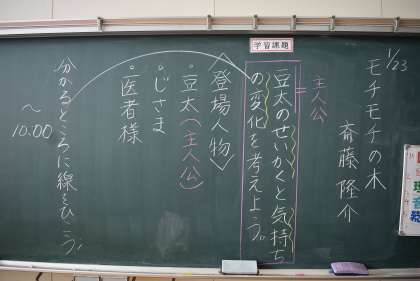 1/23
モチモチの木
斎藤隆介
学習課題
主人公
豆太のせいかくと気持ち
の変化を考えよう。
〈登場人物〉
・豆太(主人公)
・じさま
・医者様
分かるところに線をひこう。
〜
10.00